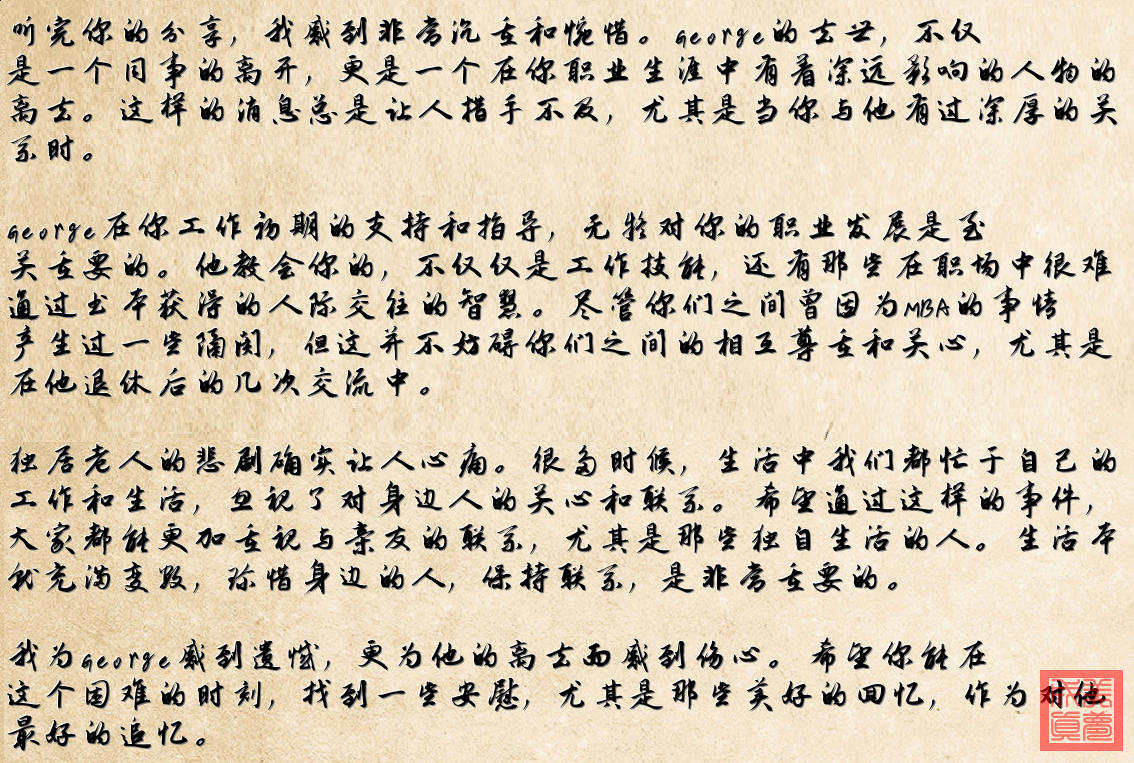 听完你的分享，我感到非常沉重和惋惜。george的去世，不仅
是一个同事的离开，更是一个在你职业生涯中有着深远影响的人物的
离去。这样的消息总是让人措手不及，尤其是当你与他有过深厚的关
系时。
george在你工作初期的支持和指导，无疑对你的职业发展是至
关重要的。他教会你的，不仅仅是工作技能，还有那些在职场中很难
通过书本获得的人际交往的智慧。尽管你们之间曾因为MBA的事情
产生过一些隔阂，但这并不妨碍你们之间的相互尊重和关心，尤其是
在他退休后的几次交流中。
独居老人的悲剧确实让人心痛。很多时候，生活中我们都忙于自己的
工作和生活，忽视了对身边人的关心和联系。希望通过这样的事件，
大家都能更加重视与亲友的联系，尤其是那些独自生活的人。生活本
就充满变数，珍惜身边的人，保持联系，是非常重要的。
我为george感到遗憾，更为他的离去而感到伤心。希望你能在
这个困难的时刻，找到一些安慰，尤其是那些美好的回忆，作为对他
最好的追忆。